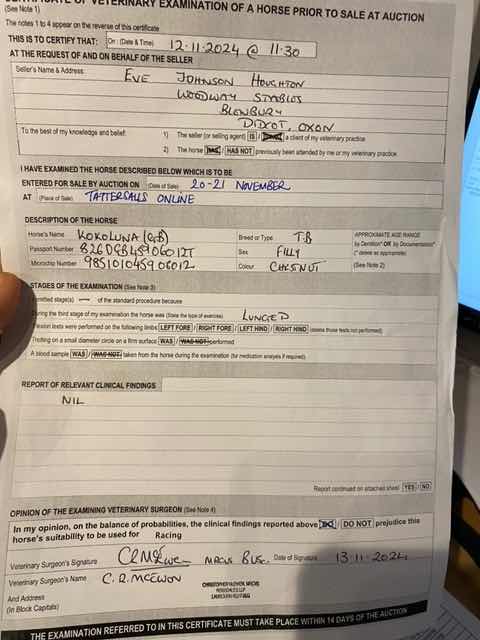 CERTIFICATE OF VETERINARY EXAMINATION OF A HORSE PRIOR TO SALE AT AUCTION
(See Note 1)
The notes 1 to 4 appear on the reverse of this certificate
THIS IS TO CERTIFY THAT: On: (Date & Time) 12.11.2024 @ 11.30
AT THE REQUEST OF AND ON BEHALF OF THE SELLER
Seller's Name & Address: EVE JOHNSON HOUGHTON
WOODWAY STABLES
BLEWBURY
DIDCOT, OXON
To the best of my knowledge and belief: 1) The seller (or selling agent) IS / a client of my veterinary practice
2) The horse HAS / HAS NOT previously been attended by me or my veterinary practice
I HAVE EXAMINED THE HORSE DESCRIBED BELOW WHICH IS TO BE
ENTERED FOR SALE BY AUCTION ON (Date of Sale) 20-21 NOVEMBER
AT (Place of Sale) TATTERSALLS ONLINE
DESCRIPTION OF THE HORSE
Horse's Name KOKOLUNA (GB) Breed or Type T.B APPROXIMATE AGE RANGE
by Dentition* OR by Documentation*
Passport Number 826DGB45906012T Sex FILLY (* delete as appropriate)
Microchip Number 985101045906012 Colour CHESTNUT (See Note 2)
STAGES OF THE EXAMINATION (See Note 3)
omitted stage(s) — of the standard procedure because
During the third stage of my examination the horse was (State the type of exercise) LUNGED
Flexion tests were performed on the following limbs LEFT FORE / RIGHT FORE / LEFT HIND / RIGHT HIND (delete those tests not performed)
Trotting on a small diameter circle on a firm surface WAS / WAS NOT performed
A blood sample WAS / WAS NOT taken from the horse during the examination (for medication analysis if required)
REPORT OF RELEVANT CLINICAL FINDINGS
NIL
Report continued on attached sheet YES / NO
OPINION OF THE EXAMINING VETERINARY SURGEON (See Note 4)
In my opinion, on the balance of probabilities, the clinical findings reported above DO / DO NOT prejudice this
horse's suitability to be used for Racing
Veterinary Surgeon's Signature MRCVS Date of Signature 13.11.2024
Veterinary Surgeon's Name C.R. MCEWON
And Address
(In Block Capitals)
THE EXAMINATION REFERRED TO IN THIS CERTIFICATE MUST TAKE PLACE WITHIN 14 DAYS OF THE AUCTION